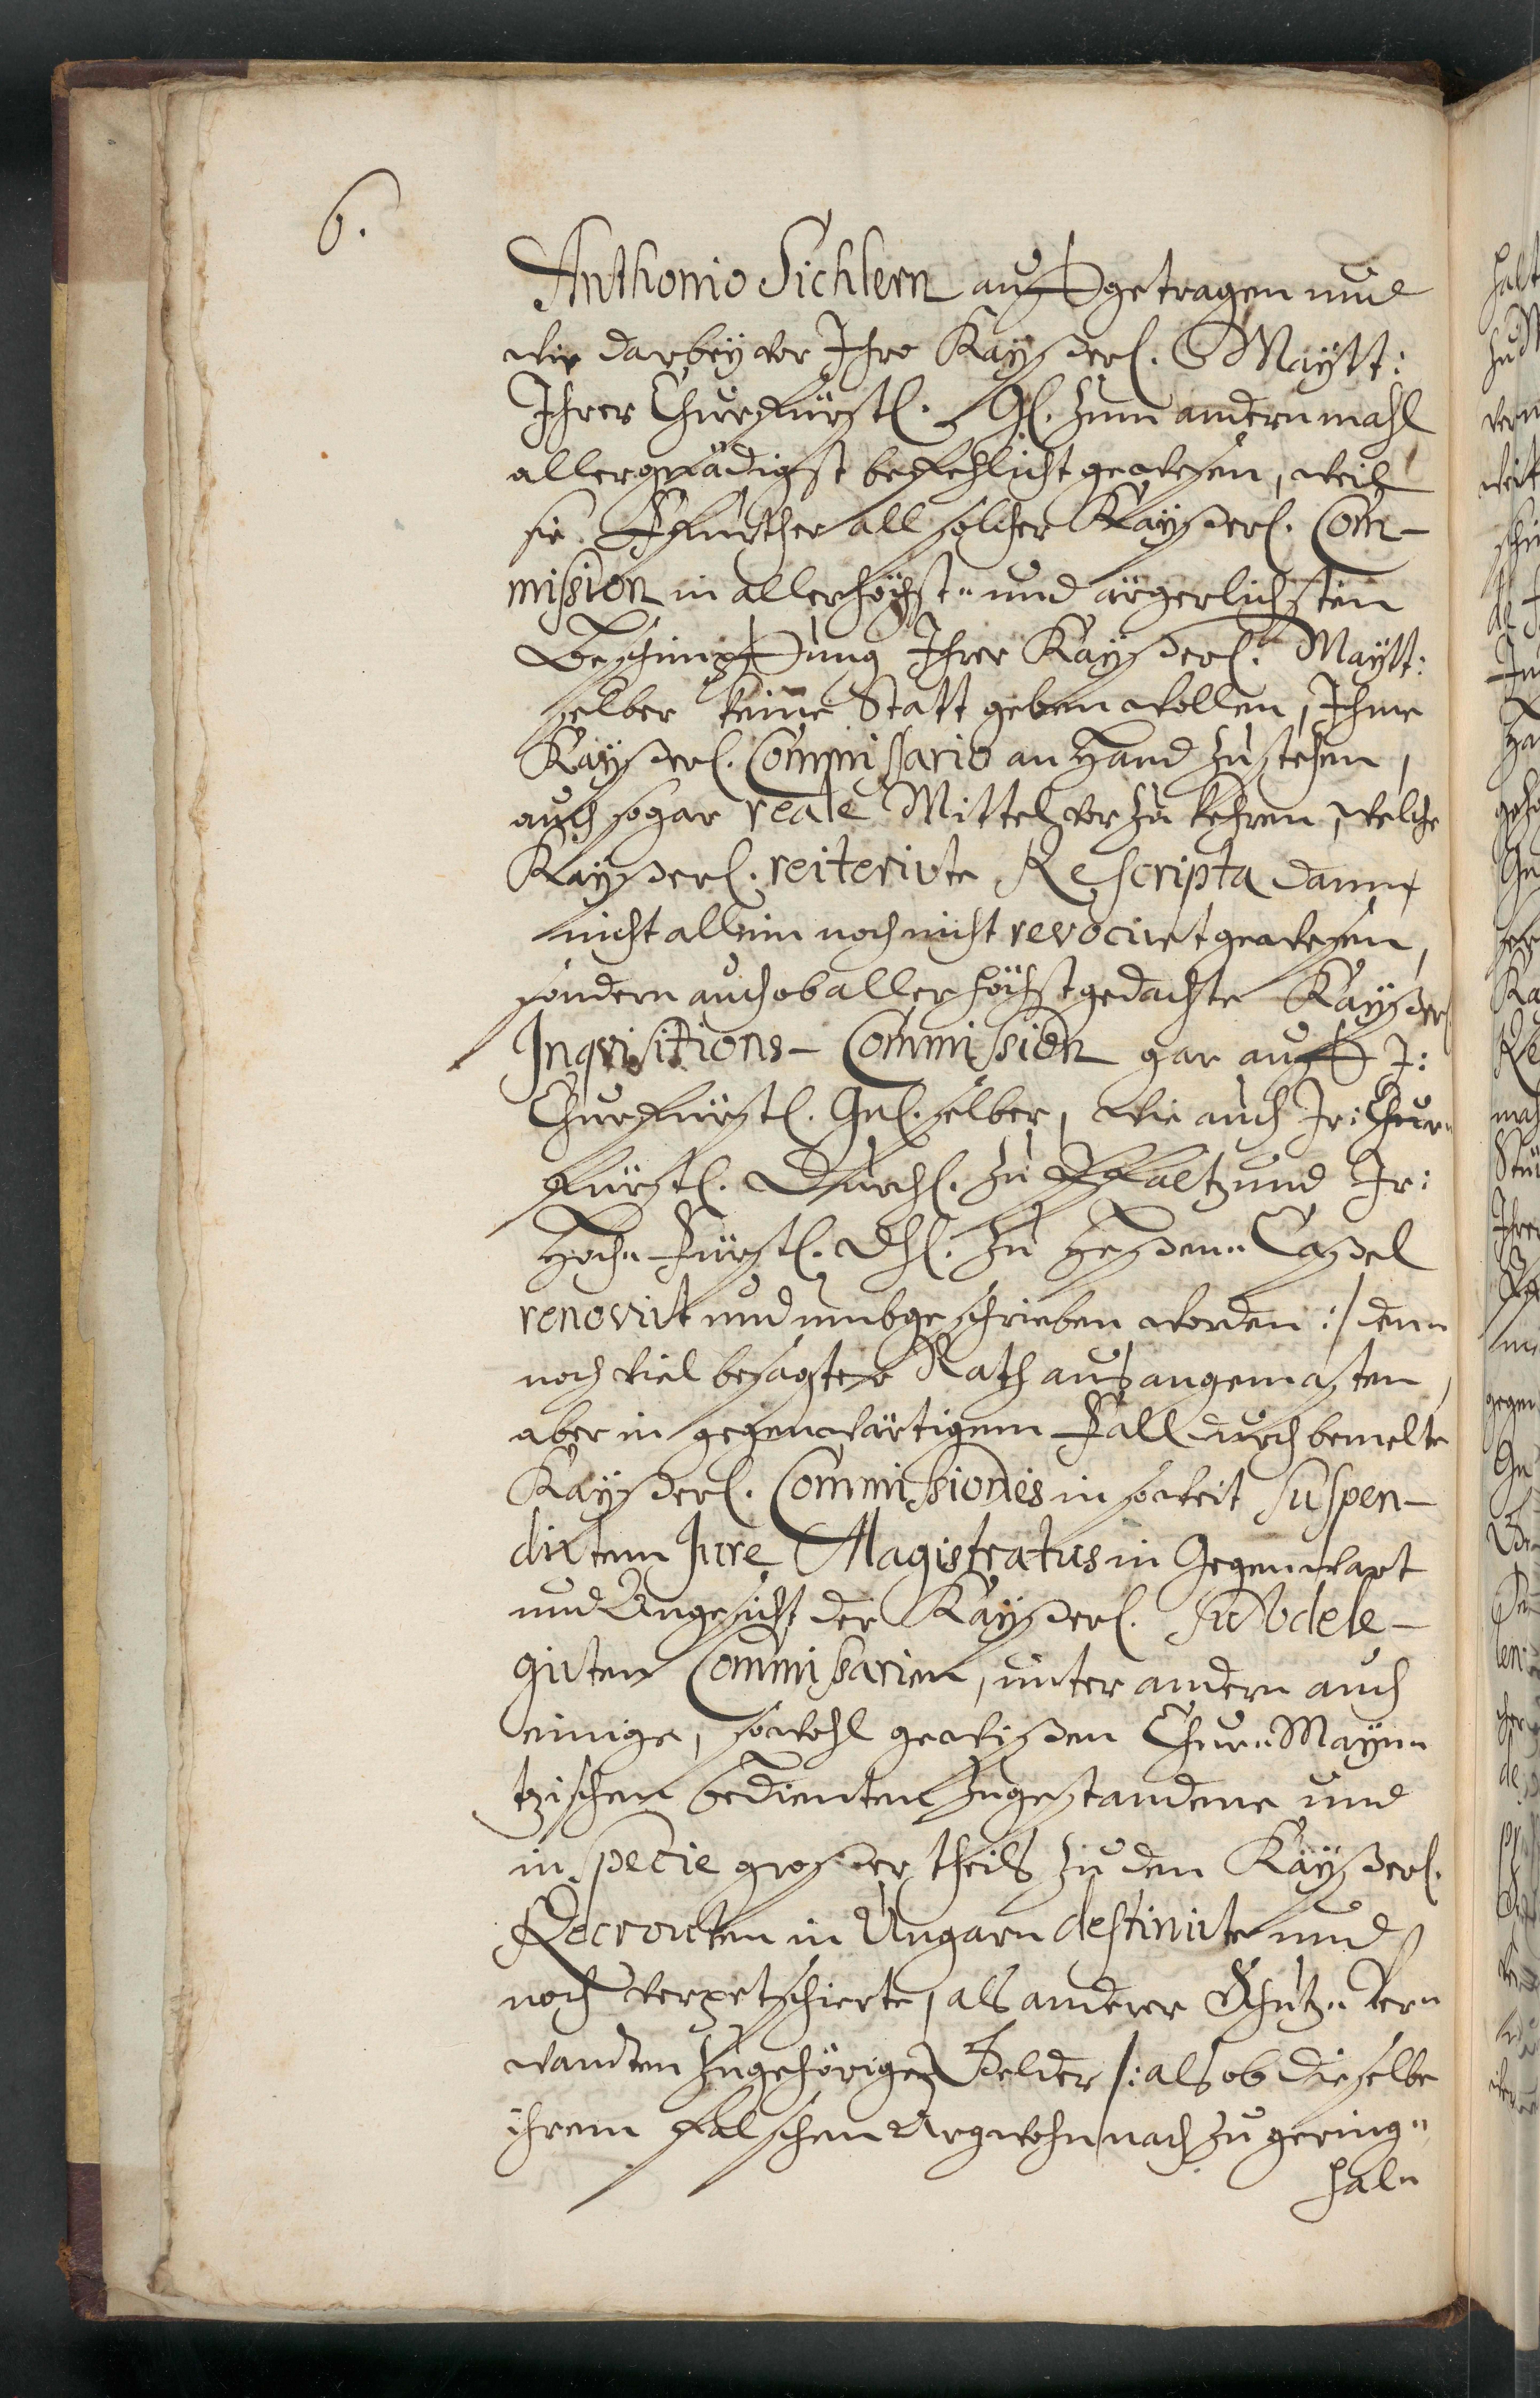 6.
Anthonio Sichlern auffgetragen und
wie darbey vor Ihro Kaysserl. Maytt:
Ihrer Churfürstl. Gl. zum andernmahl
allergnädigst befehlicht gewesen, weil
sie Ffurther all solcher Kaysserl. Com-
mission in allerhöchst- und ärgerlichsten
Beschimpffung Ihrer Kaysserl. Maytt:
selber keine Statt geben wollen, Ihme
Kaysserl. Commissario an Hand zu stehen,
auch sogar reale Mittel vorzukehren, welche
Kaysserl. reiterirte Rescripta dann
nicht allein noch nicht revociret gewesen,
sondern auch ob allerhöchstgedachte Kaysserl
Inquisitions-Commission gar auff I:
Churfürstl. Gnl. selber, wie auch Ir: Chur-
fürstl. Durchl. zu Pfaltz und Ir:
Hoch-Fürstl. Dhl. zu Hessen-Cassel
renovirt und umbgeschrieben worden :/ den-
noch viel besagter Rath aus angemasten,
aber in gegenwärtigem Fall durch bemelte
Kaysserl. Commissiones in soweit suspen-
dirtem Jure Magistratus in Gegenwart
und Angesicht der Kaysserl. Subdele-
girten Commissarien, unter andern auch
einige, sowohl gewissen Chur-Mayn-
tzischen Bedienten zugestandene und
in specie grosser theils zu den Kaysserl.
Recrouten in Ungarn destinirte und
noch verpetschierte, als anderer Schutz-Ver-
wandten zugehörige Felder /: als ob dieselbe
ihrem falschen Argwohn nach zu gering-
hal-